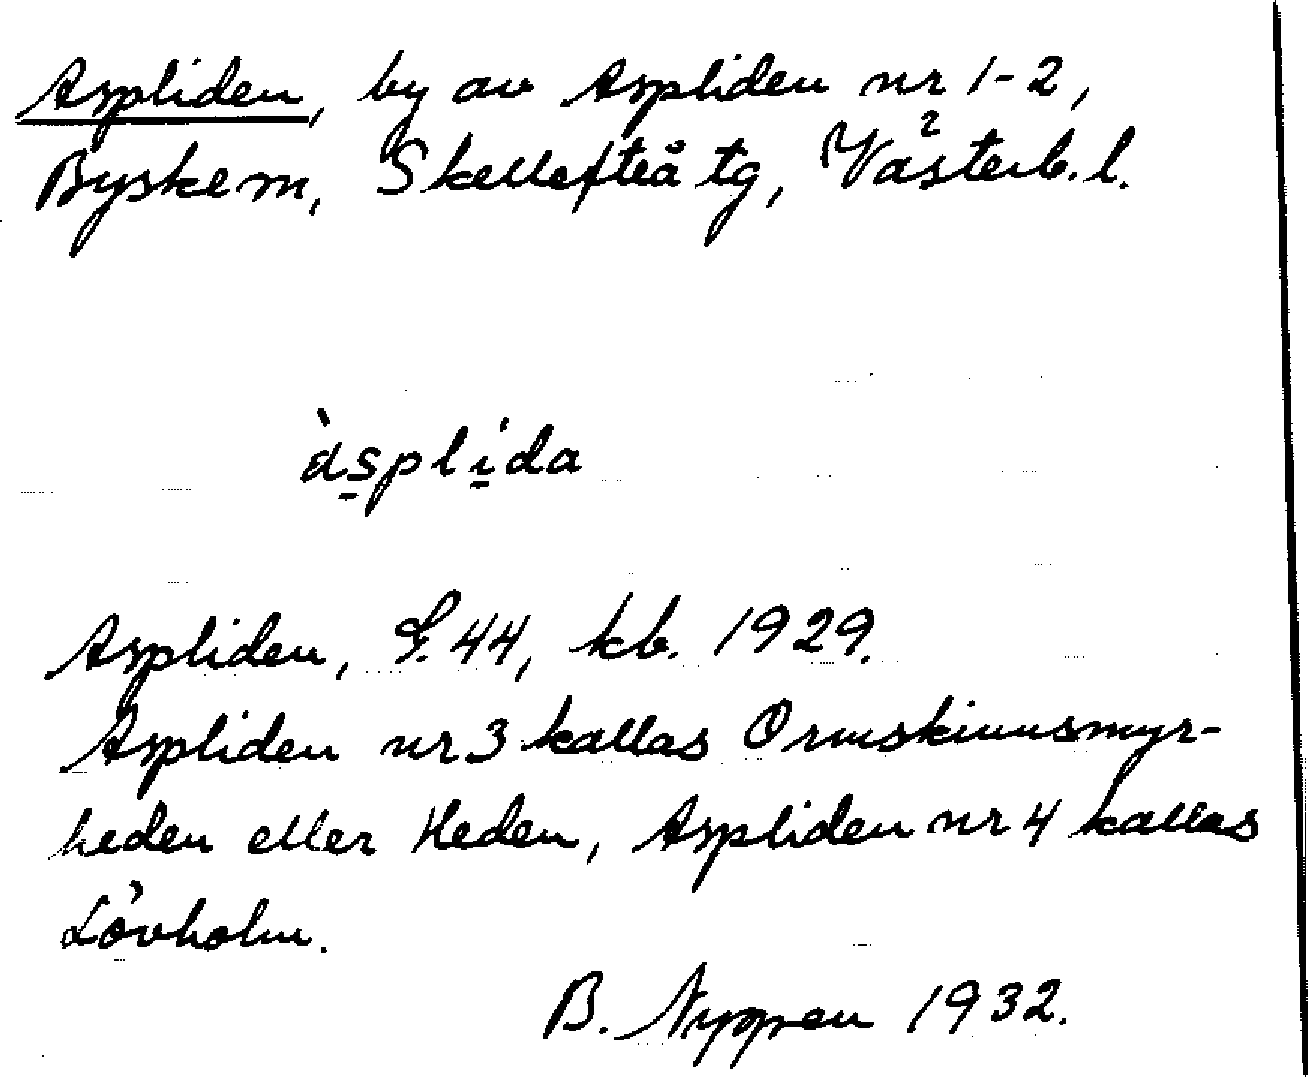 Aspliden, by av Aspliden nr 1-2,
Byske m, Skellefteå tg, Västerb. l.
àsplída
Aspliden, S. 44, kb. 1929.
Aspliden nr 3 kallas Ormskinnsmyr-
heden eller Heden, Aspliden nr 4 kallas
Lövholm.
B. Nygren 1932.